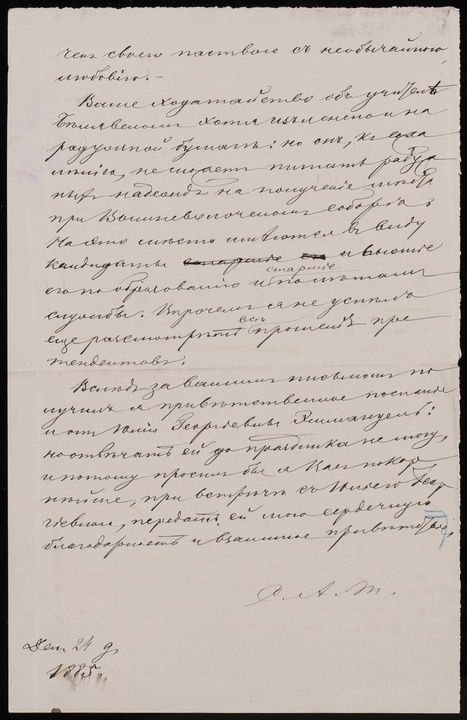 ченъ своею паствою съ необычайною
любовію. –
Ваше ходатайство объ учителѣ
Бѣлявскомъ хотя изъяснено и на
радужной бумагѣ: но онъ, къ сожа
лѣнію, не можетъ питать радуж
ныхъ надеждъ на полученіе мѣста
при Вышневолоцкомъ соборѣ;
на это мѣсто имѣются въ виду
кандидаты старшіе и высшіе
старшіе
его по образованію и по лѣтамъ
службы. Впрочемъ я не успѣлъ
всѣ
еще разсмотрѣть прошенія пре
тендентовъ.
Вслѣдъ за вашимъ письмомъ по
лучилъ я привѣтственное посланіе
и отъ Юліи Георгіевны:
но отвѣчать ей до праздника не могу,
и потому просилъ бы я Васъ покор
нѣйше, при встрѣчѣ съ Юліею Геор
гіевною, передать ей мою сердечную
благодарность и взаимное привѣтствіе.
С. А. Т.
Дек. 24 д.
1885.